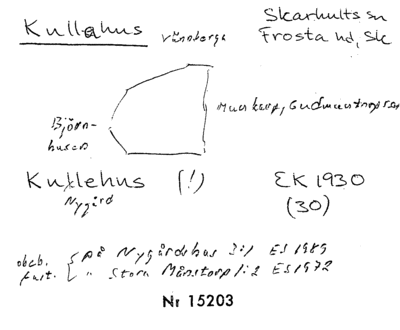 Kullahus
Skarhults sn
Frosta hd, Sk
Björn-
husen
Kullehus (!) EK 1930
Nygård (30)
obeb. på Nygårdshus 3:1 ES 1989
fast. " Stora Månstorp 1:2 ES 1972
Nr 15203